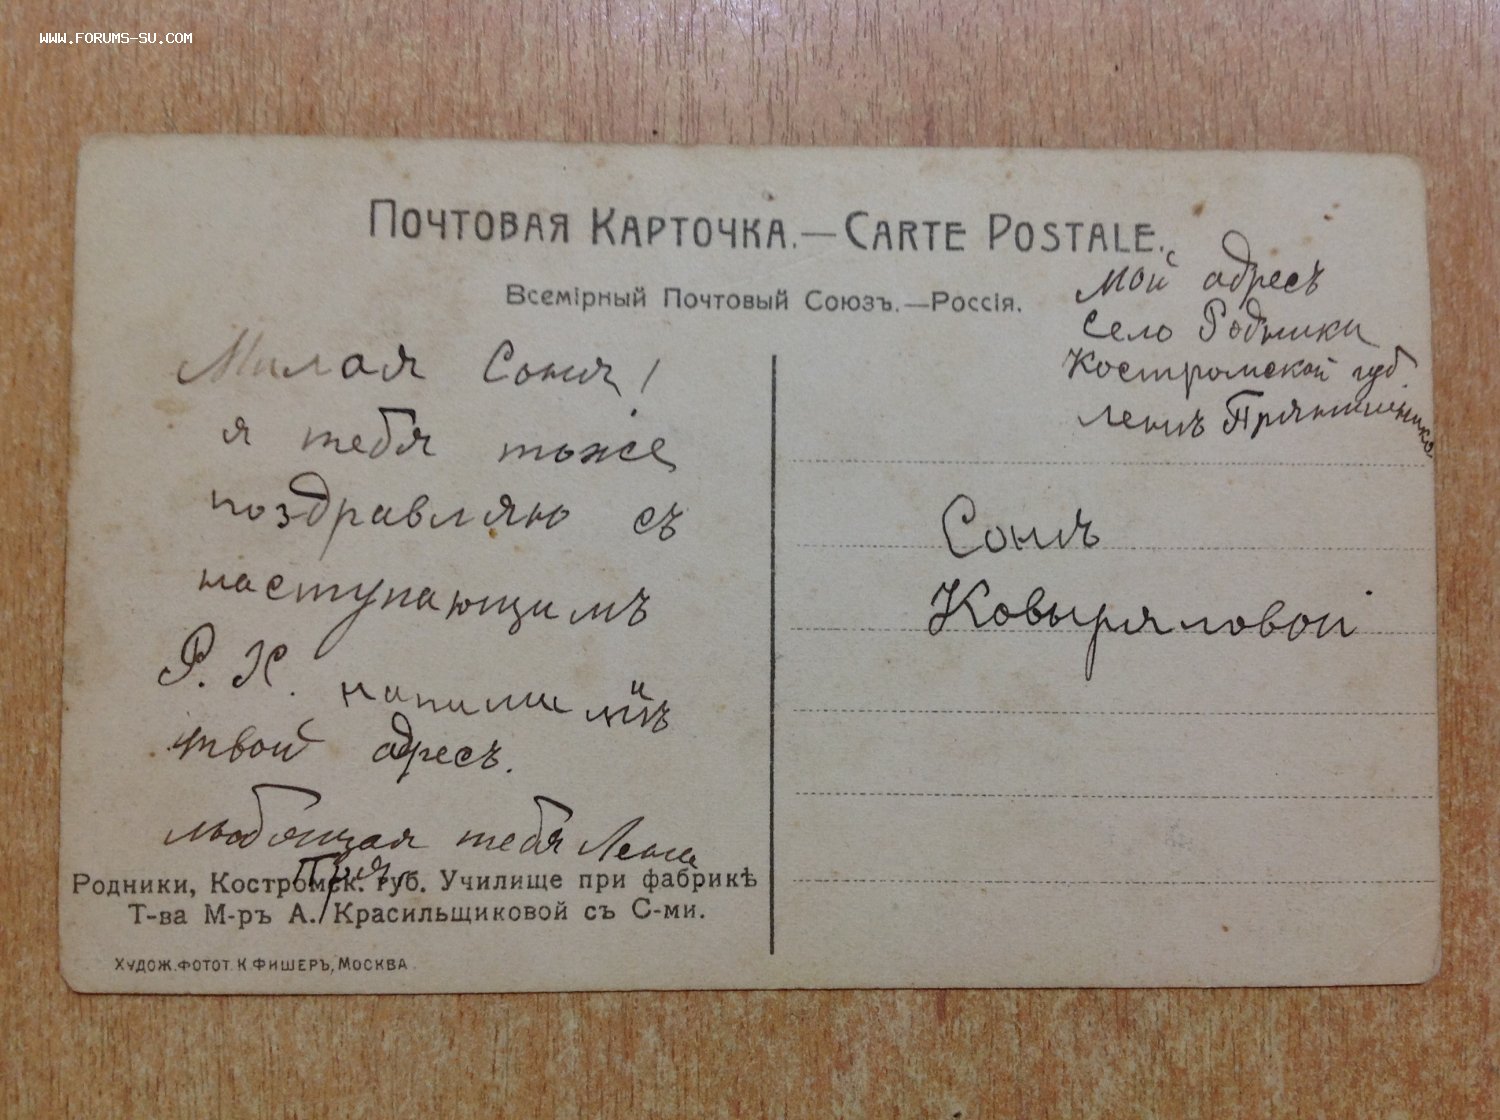 WWW.FORUMS-SU.COM
ПОЧТОВАЯ КАРТОЧКА.—CARTE POSTALE.
Всемірный Почтовый Союзъ.—Россія.
Мой адресъ
село Родники
Костромской губ.
Милая Соня!
я тебя тоже
поздравляю съ
наступающимъ
Р. Х. напиши мнѣ
твой адресъ.
любящая тебя Лена
Сонѣ
Ковыряловой
Родники, Костромск. губ. Училище при фабрикѣ
Т-ва М-ръ А. Красильщиковой съ С-ми.
ХУДОЖ.ФОТОТ.К.ФИШЕРЪ, МОСКВА.